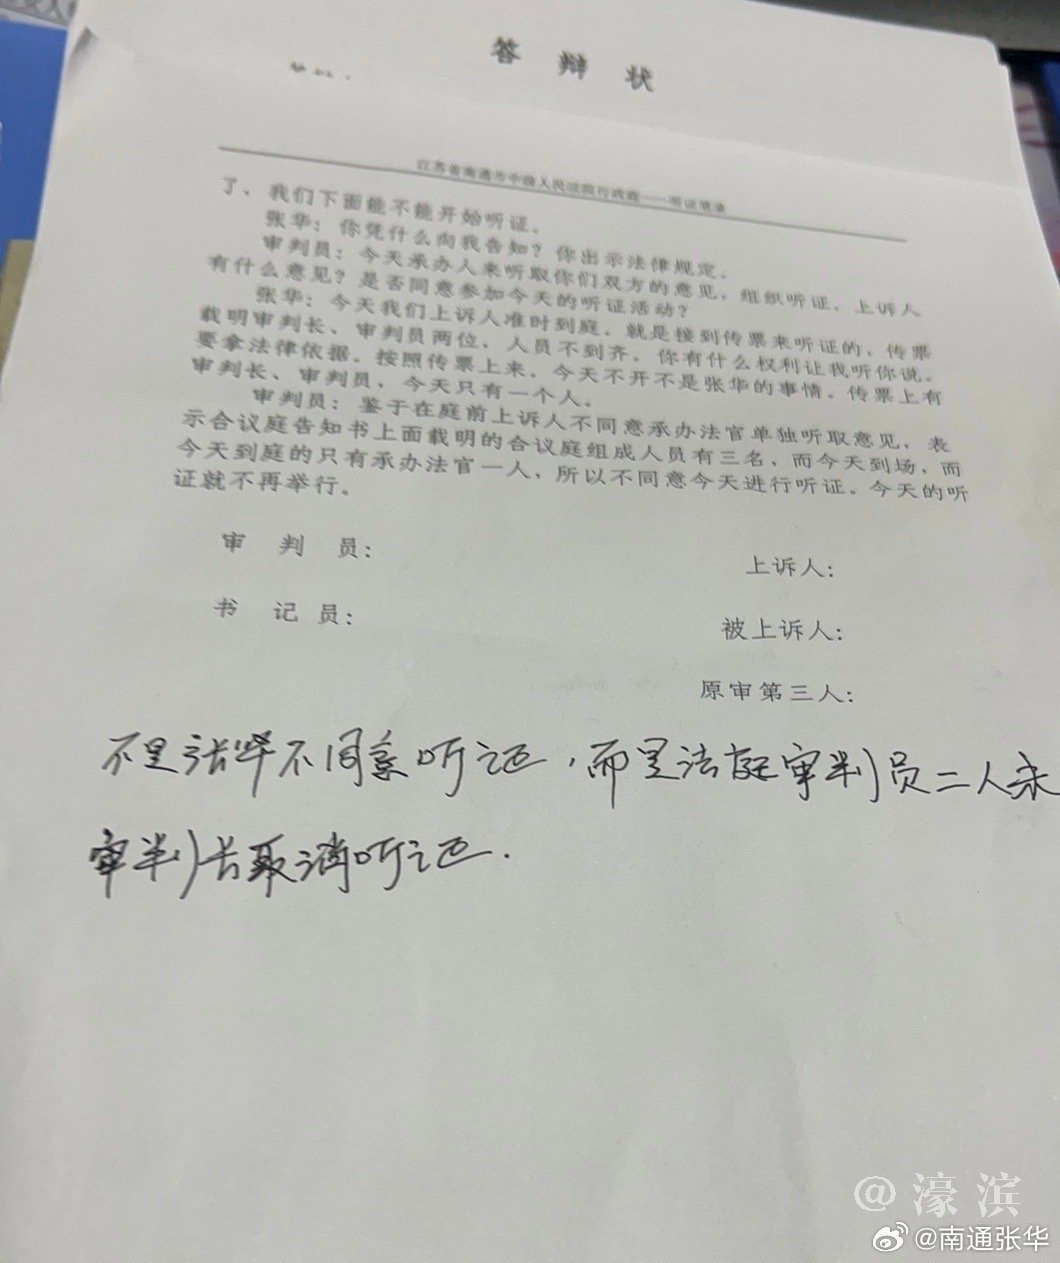 答 辩 状
江苏省南通市中级人民法院行政庭——听证笔录
了、我们下面能不能开始听证。
张华：你凭什么向我告知？你出示法律规定。
审判员：今天承办人来听取你们双方的意见，组织听证，上诉人
有什么意见？是否同意参加今天的听证活动？
张华：今天我们上诉人准时到庭，就是接到传票来听证的，传票
载明审判长、审判员两位，人员不到齐，你有什么权利让我听你说。
要拿法律依据。按照传票上来。今天不开不是张华的事情。传票上有
审判长、审判员，今天只有一个人。
审判员：鉴于在庭前上诉人不同意承办法官单独听取意见，表
示合议庭告知书上面载明的合议庭组成人员有三名，而今天到场，而
今天到庭的只有承办法官一人，所以不同意今天进行听证。今天的听
证就不再举行。
审 判 员：
上诉人：
书 记 员：
被上诉人：
原审第三人：
不是张华不同意听证，而是法庭审判员二人未
审判长取消听证.
@濠滨
@南通张华